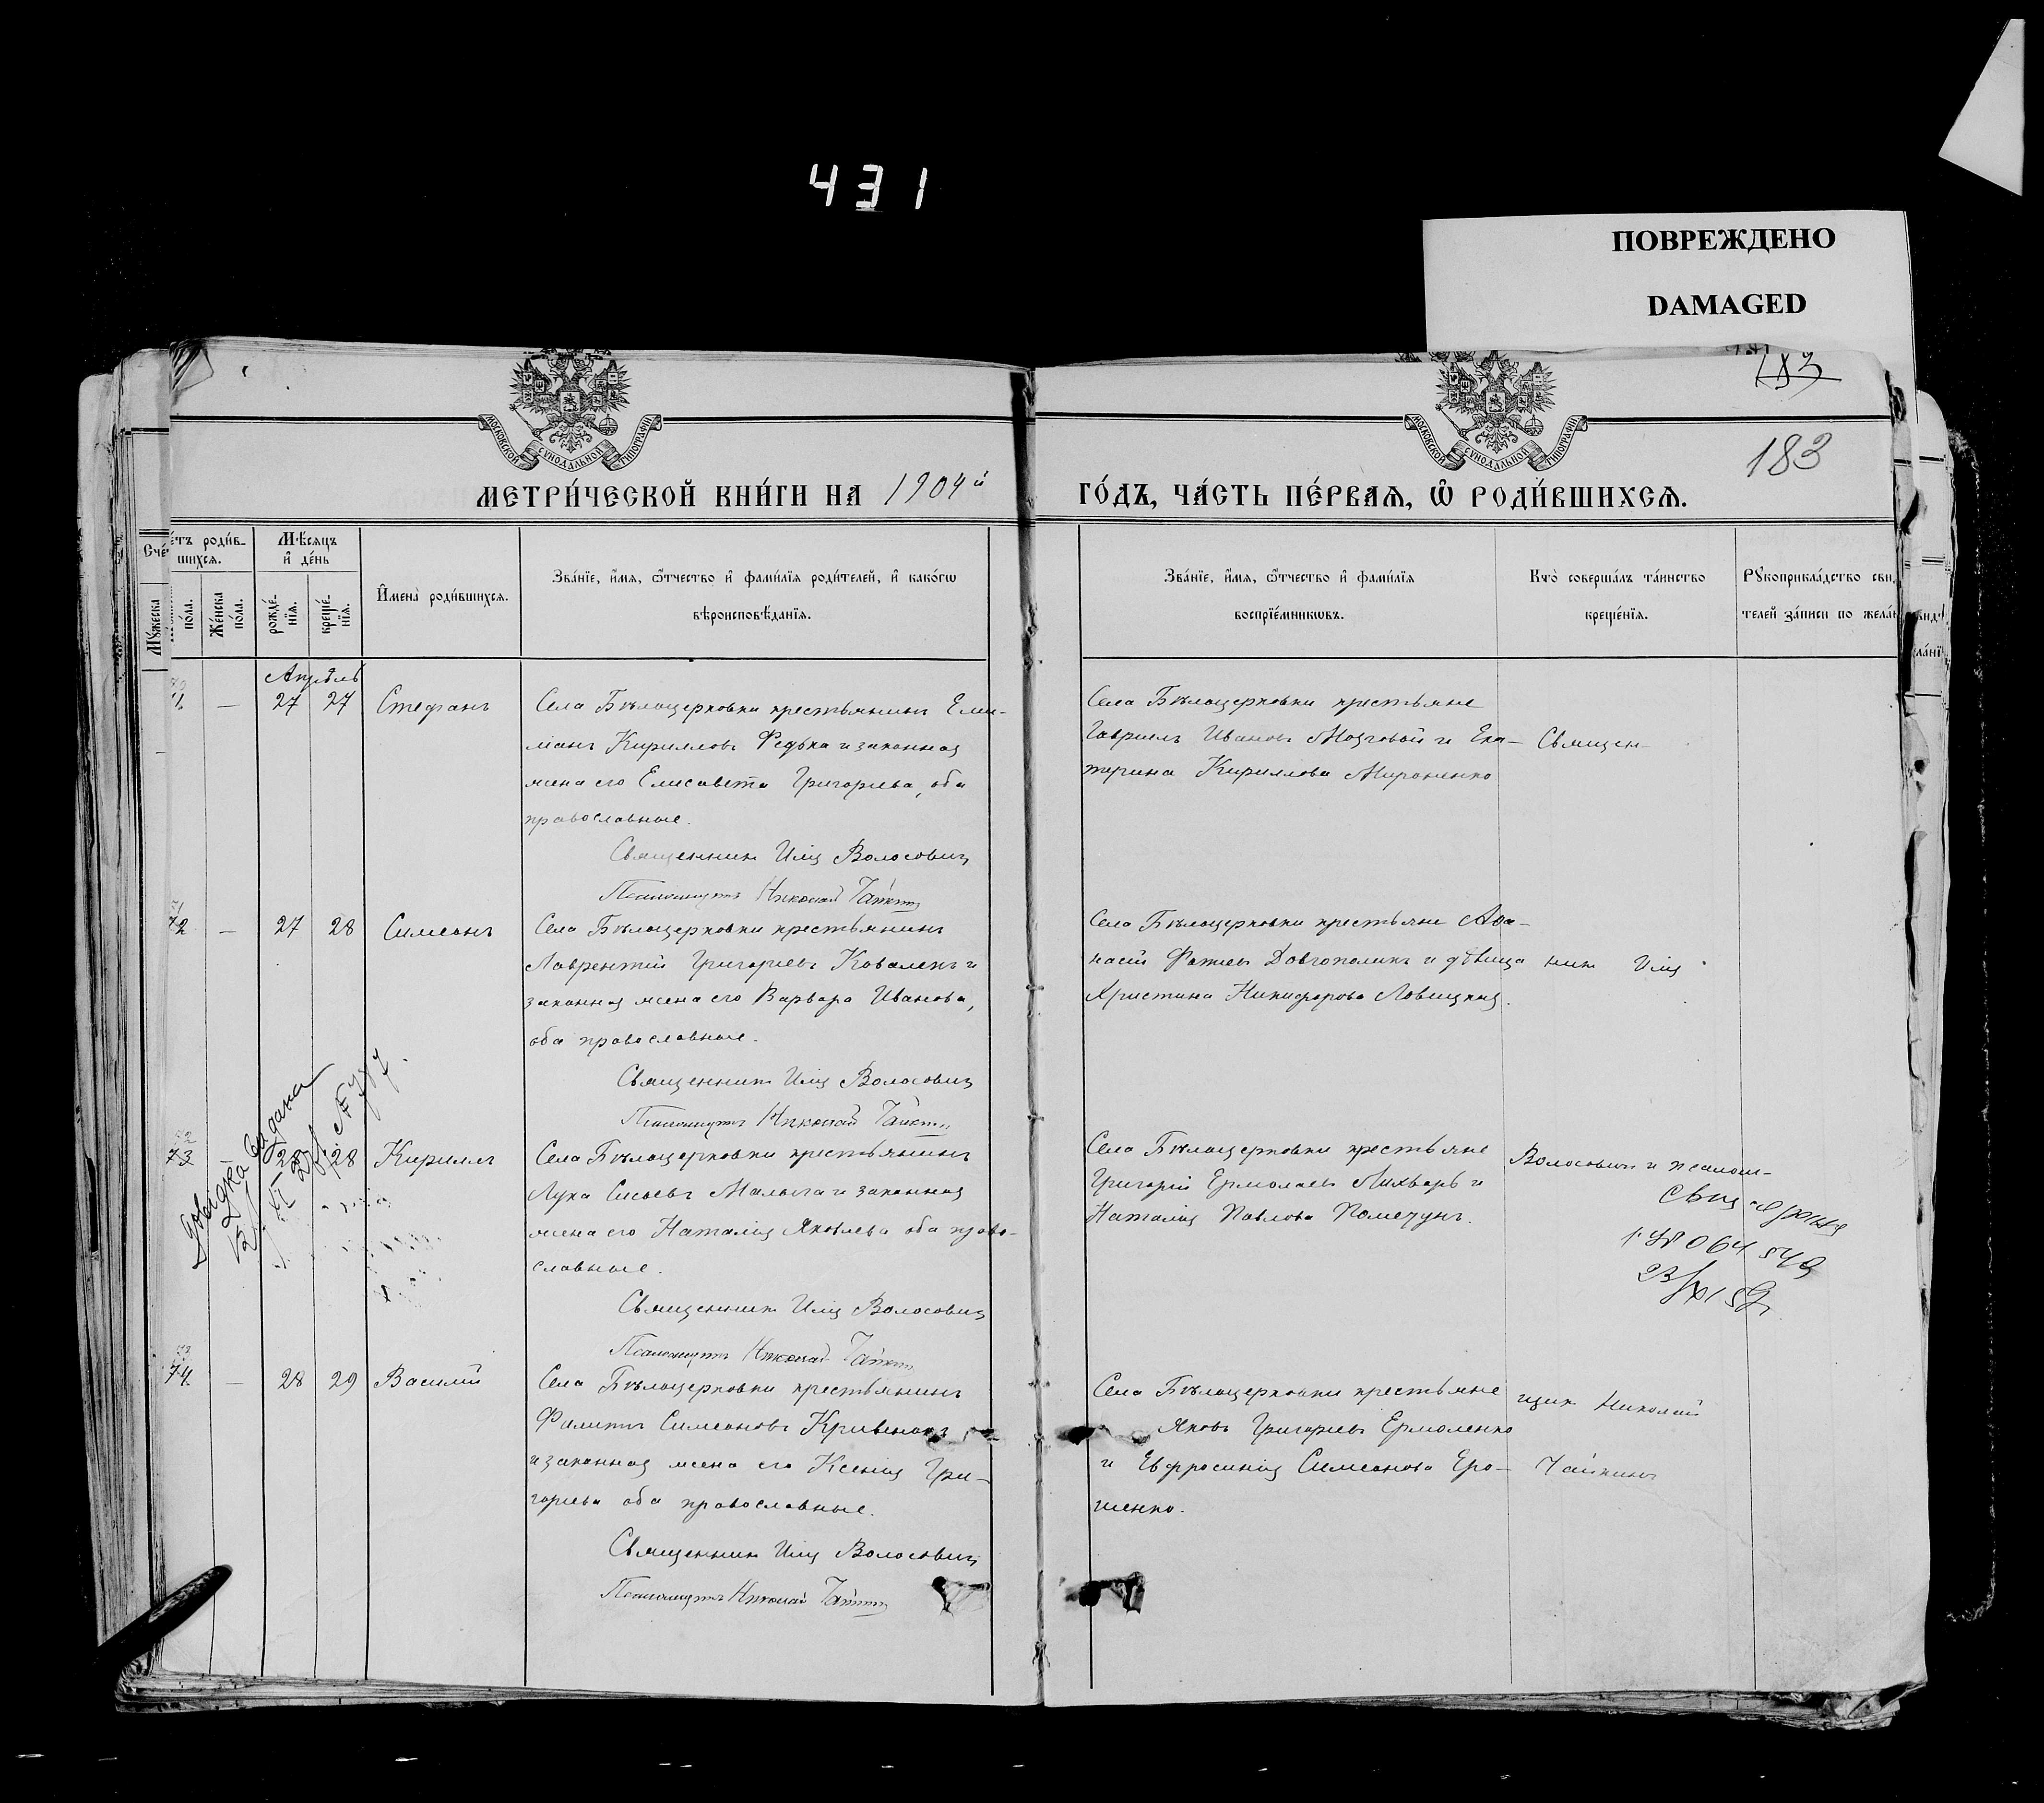 431
ПОВРЕЖДЕНО
DAMAGED
183
183
МОСКОВСКОЙ СУНОДАЛЬНОЙ ТИПОГРАФІИ
МОСКОВСКОЙ СУНОДАЛЬНОЙ ТИПОГРАФІИ
МЕТРИ́ЧЕСКОЙ КНИ́ГИ НА 1904й
ГО́ДЪ, ЧА́СТЬ ПЕ́РВАЯ, Ѡ҆ РОДИ́ВШИХСЯ.
Сче́тъ роди́вшихся.
Му́жеска по́ла.
Же́нска по́ла.
Мѣ́сяцъ и҆ де́нь
рожде́нїя.
креще́нїя.
И҆мена̀ роди́вшихся.
Зва́нїе, и҆́мя, ѻ҆́тчество и҆ фами́лїя роди́телей, и҆ како́гѡ
вѣроисповѣ́данїя.
Зва́нїе, и҆́мя, ѻ҆́тчество и҆ фами́лїя
воспрїе́мникѡвъ.
Кто̀ соверша́лъ та́инство
креще́нїя.
Рꙋкоприкла́дство свид
телей за́писи по жела́
Апрѣль
— 27 27 Стефанъ
Села Бѣлоцерковки крестьянинъ Еми-
ліанъ Кирилловъ Редька и законная
жена его Елисавета Григорьева, оба
православные.
Священникъ Илія Волосовичъ
Псаломщикъ Николай Чайкинъ
Села Бѣлоцерковки крестьяне
Гавріилъ Ивановъ Мозговой и Ека-
терина Кириллова Мироненко
Священ-
72 — 27 28 Симеонъ
Села Бѣлоцерковки крестьянинъ
Лаврентій Григорьевъ Коваленъ и
законная жена его Варвара Иванова,
оба православные.
Священникъ Илія Волосовичъ
Псаломщикъ Николай Чайкинъ
Села Бѣлоцерковки крестьяне Афа-
насій Фотіевъ Довгополикъ и дѣвица
Христина Никифорова Ловицкая.
никъ Илія
Довідка видана
73 28 28 Кириллъ
Села Бѣлоцерковки крестьянинъ
Лука Сысоевъ Малыга и законная
жена его Наталія Яковлева оба право-
славные.
Священникъ Илія Волосовичъ
Псаломщикъ Николай Чайкинъ
Села Бѣлоцерковки крестьяне
Григорій Ермолаевъ Лихваръ и
Наталія Павлова Помечунъ.
Волосовичъ и псалом-
064549
74 — 28 29 Василій
Села Бѣлоцерковки крестьянинъ
Филиппъ Симеоновъ Кривенокъ
и законная жена его Ксенія Гри-
горьева оба православные.
Священникъ Илія Волосовичъ
Псаломщикъ Николай Чайкинъ
Села Бѣлоцерковки крестьяне
Яковъ Григорьевъ Ермоленко
и Евфросинія Симеонова Еро-
шенко.
щикъ Николай
Чайкинъ